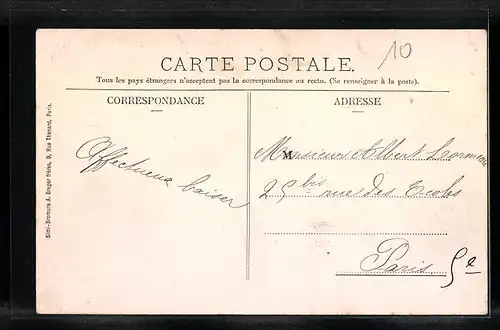 10
CARTE POSTALE.
Tous les pays étrangers n'acceptent pas la correspondance au recto. (Se renseigner à la poste).
CORRESPONDANCE
ADRESSE
Affectueux baiser
Monsieur Albert
25 bis rue des Ecoles
Paris 5e
Simi-Bromure A. Breger frères, 9, Rue Thénard, Paris.